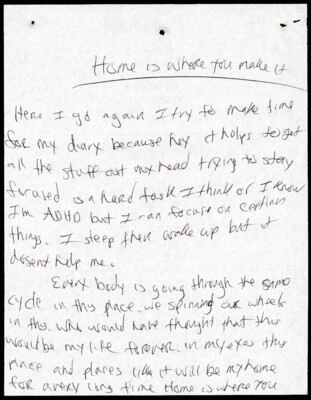 Home is where you make it
Here I go again I try to make time
for my diary because hey it helps to get
all the stuff out my head trying to stay
forused is a hard task I think or I know
I'm ADHD but I can focus on certian
things. I sleep then wake up but it
dosent help me.
Every body is going through the same
cycle in this place. we spinning our wheels
in this. who would have thought that this
would be my life forever. in my eyes this
place and places like it will be my home
for a very long time Home is where you